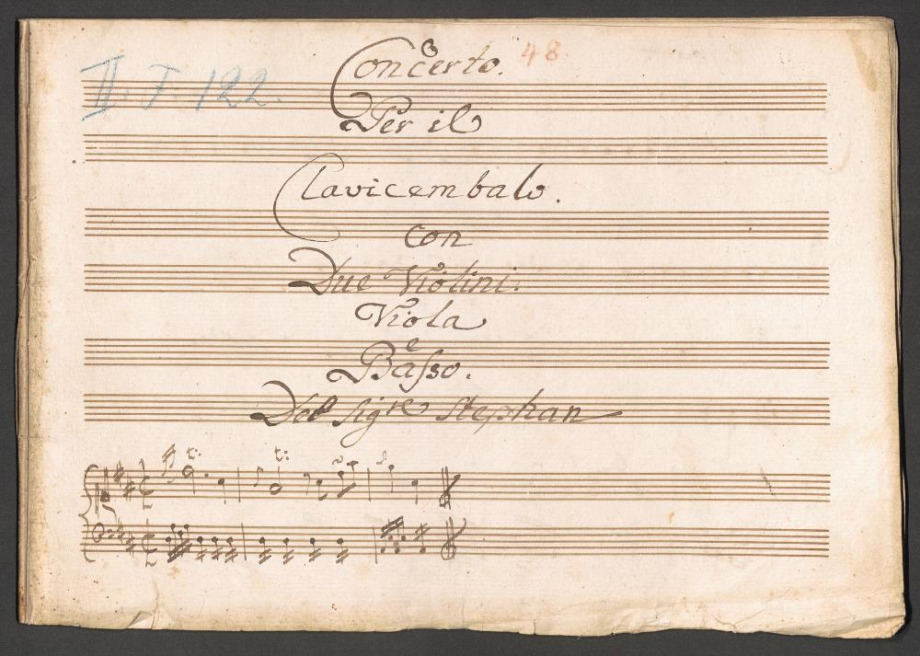 48.
II. J. 122.
Concerto.
Per il
Clavicembalo.
con
Due Violini.
Viola
e
Baſso.
Del Sigre Stephan
t: t: